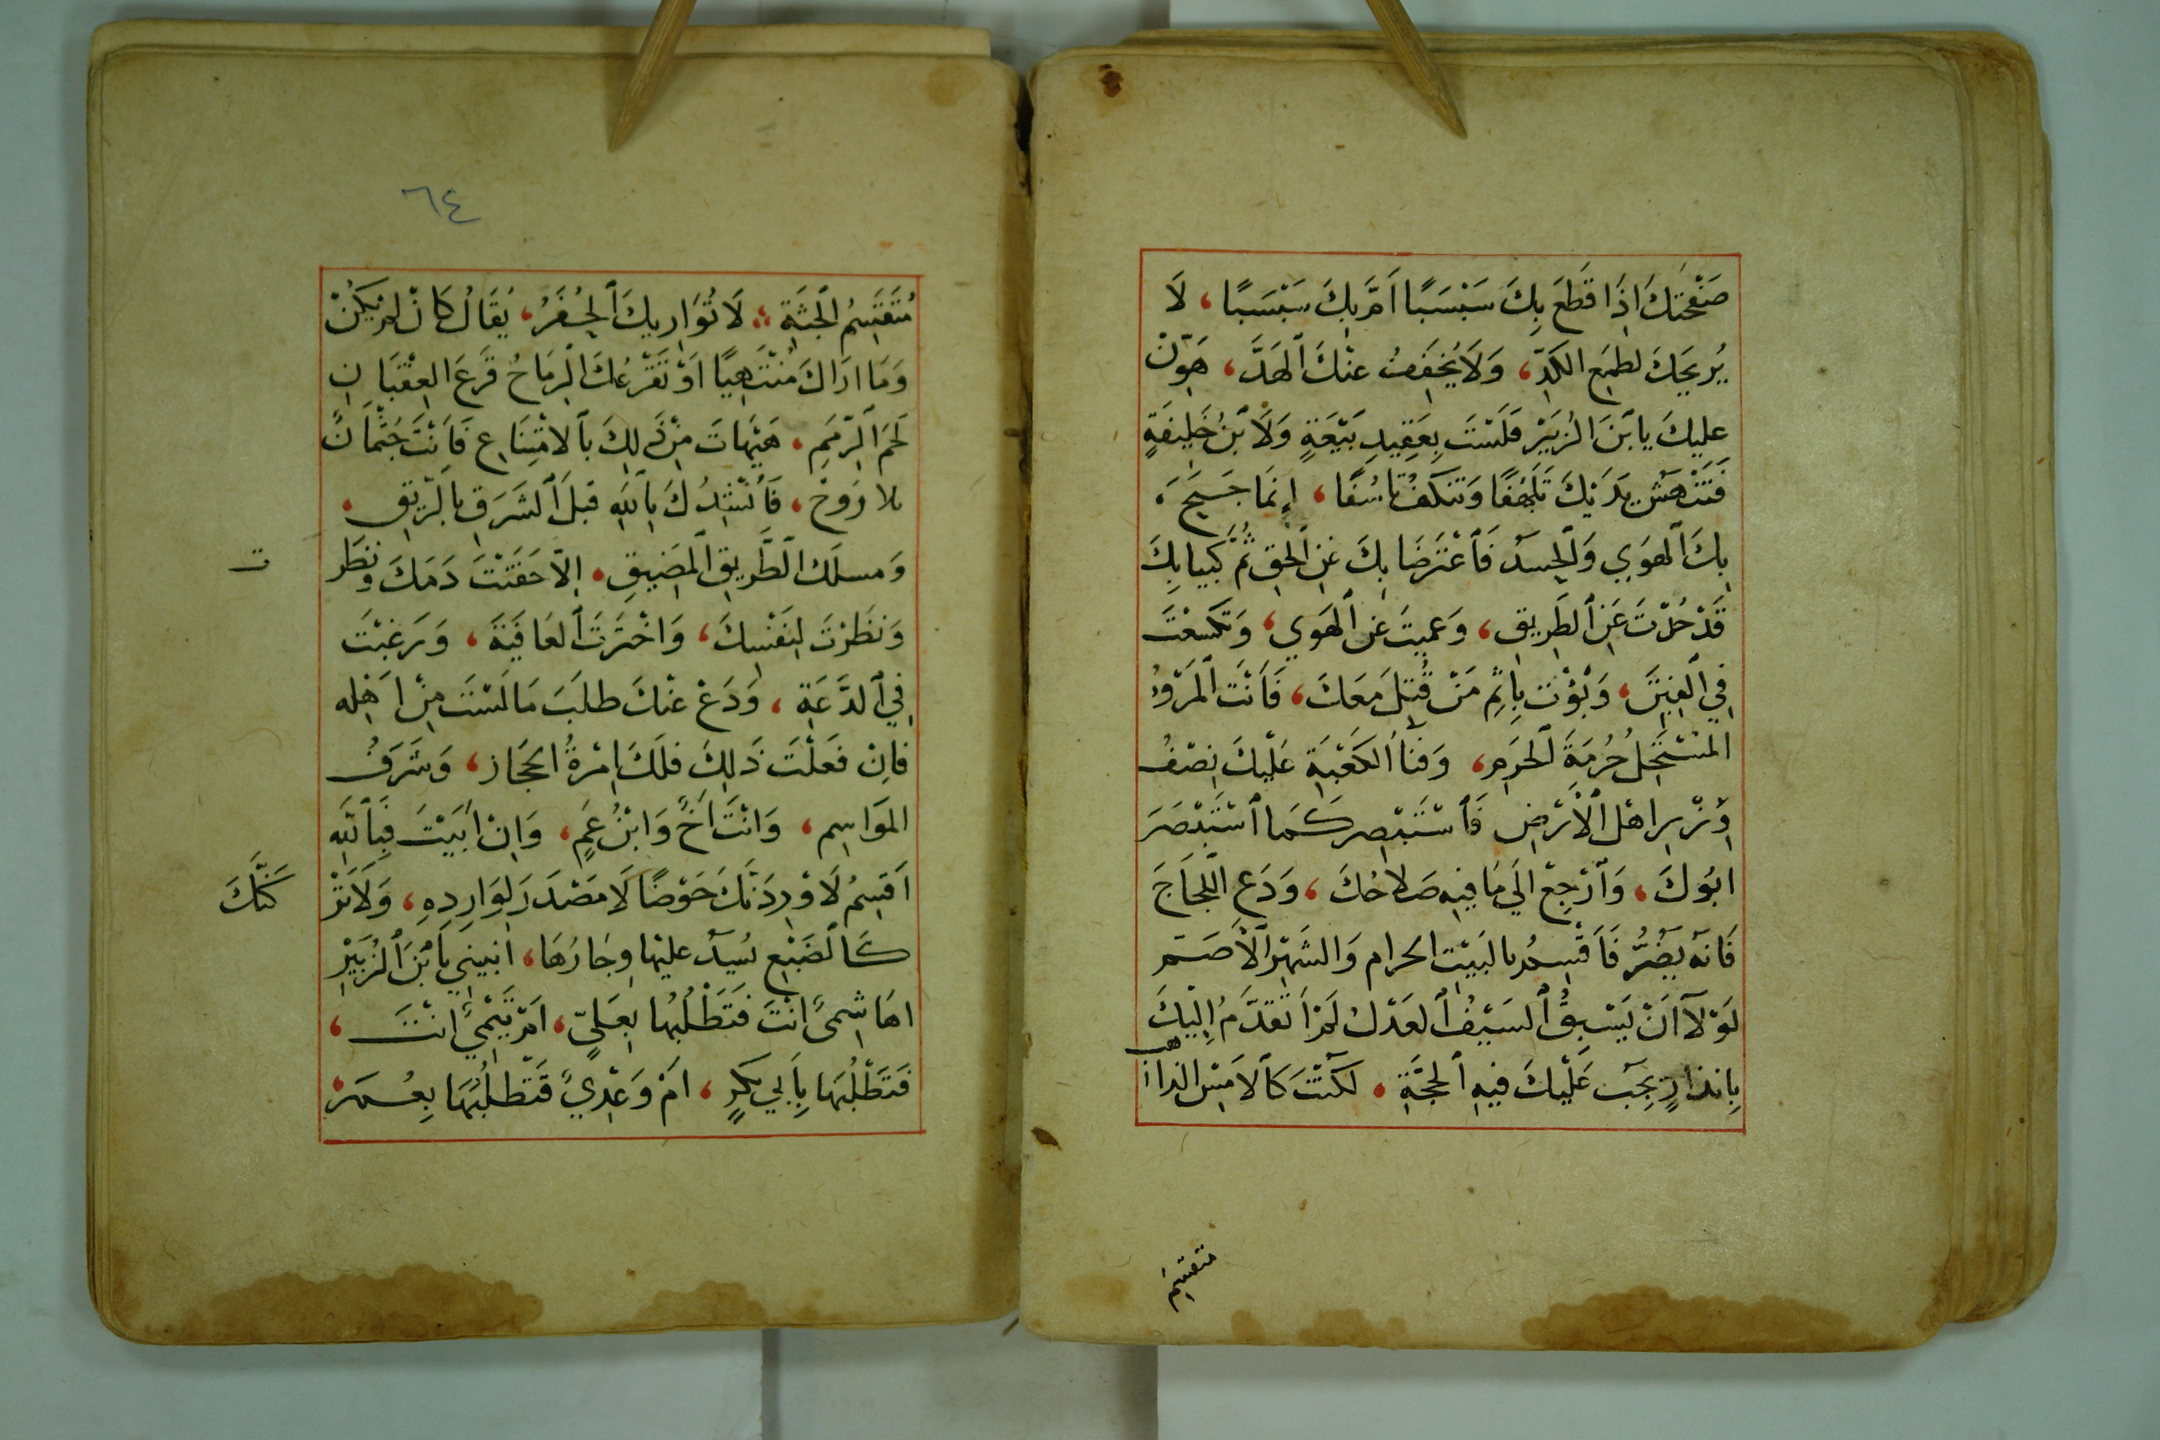 صَفْحَتكَ اذَا قَطَعَ بِكَ سَبْسَبًا اَمَّ بِكَ سَبْسَبًا، لَا
يُرِيحَكَ لطمَعِ الكَدِّ، وَلَا يُخَفِّفُ عَنْكَ ٱلهَدَّ، هَوِّنْ
عليكَ يا ٱبْنَ الزُبَيْرِ فَلَسْتَ بِعَقِيدِ بَيْعَةٍ وَلَا ٱبْنُ خَلِيفَةٍ
فَتَنْهَشْ يَدَيْكَ تَلَهُّفًا وَتَنَكَفُ تَأَسُفًا، اِنَمَا جَمَحَ
بِكَ ٱلهَوَي وَٱلحَسدُ فَٱعْتَرَضَا بِكَ عَنِ ٱلحَقِ ثُمَّ كَبَيا بِكَ
قَدْ حُدْتَ عَنِ ٱلطَرِيقِ، وَعَمِيتَ عَنِ ٱلهَوَي، وَتَكَسعْتَ
فِي ٱلفِتَنِ، وَبُؤْتَ بِاِثْمِ مَنْ قُتِلَ مَعَكَ، فَاَنْتَ ٱلمَرْؤُ
المُسْتَحِلُ حُرْمَةَ ٱلحَرَمِ، وَفَنَا ٱلكَعْبَةِ عَلَيْكَ نِصْفُ
وِزْرِ اهْلِ ٱلْاَرْضِ فَٱسْتَبْصِر كَمَا ٱسْتَبْصَرَ
ابُوكَ، وَٱرْجِعْ الَي مَا فِيهِ صَلاحُكَ، وَدَعِ اللَّجَاجَ
فَانَهُ يَضُرُّ فَاَقْسِمُ بالبَيْتِ الحرام وَالشَهْرِ ٱلْاَصَمّ
لَوْلَآ اَنْ يَسْبِقَ ٱلسَيْفُ ٱلعَدْلَ لَمْ اَتَقدَّمُ اِلَيْكَ
بِانذارٍ يَجِبُ عَلَيْكَ فِيهِ ٱلحجَّةِ، لكنْتَ كَٱلاَمْسِ الذاهب
متقسم
٦٤
مُتَقَسِّمُ ٱلجُثَةِ، لَا تُوَارِيكَ ٱلحُفَرُ، يُقَالُ كَانْ لَمْ يَكُنْ
وَمَا ارَاكَ مُنْتَهِيًا اَوْ تَقْرَعُكَ ٱلرِمَاحُ قَرْعَ العِقْبَانِ
لَحَمَ ٱلرِّمَمِ، هَيْهَاتَ مِنْ ذَلِكَ بٱلامْتِنَاعِ فَاَنْتَ جُثْمَانٌ
بلا رُوحْ، فَاُنْشِدُكَ بِٱللهِ قَبلَ ٱلشَرَقِ بِالرِّيقِ،
وَمسلَك ٱلطَّرِيقِ ٱلمَضِيقِ، اِلَّا حَقَنْتَ دَمَكَ وَنظَر
ت
وَنَظَرْتَ لِنَفْسِكَ، وَاخْتَرتَ ٱلعَافِيَةَ، وَرَغِبْتَ
فِي ٱلدَّعَةِ، وَدَعْ عنْكَ طلَبَ مَا لَسْتَ مِنْ اَهْلِه
فَاِنْ فَعَلْتَ ذَلِكَ فلَكَ اِمْرةُ الحجَاز، وَشَرَفُ
المَوَاسِم، وَانْتَ اَخٌ وَابْنُ عَمٍ، وَاِنْ اَبَيْتَ فَبِٱللَّه
اَقسِمُ لَاوْرِدَنَّكَ حَوْضًا لَا مَصْدَرَ لِوَارِدِهِ، وَلَاَتْرُ
كَنَّكَ
كَٱلضَبْعِ سُدَّ عليْهَا وِجَارُهَا، انبِينِي يَا ٱبْنَ ٱلزُبَيْرِ
اهَاشِمِىٌّ انْتَ فَتَطْلُبُهَا بِعَلِيٍّ، اَمْ تَيْمِيٌّ انْتَ،
فَتَطْلُبُهَا بِاَبي بَكرٍ، اَمْ وَعَدِيٌّ فَتَطلُبُهَا بِعُمَرْ